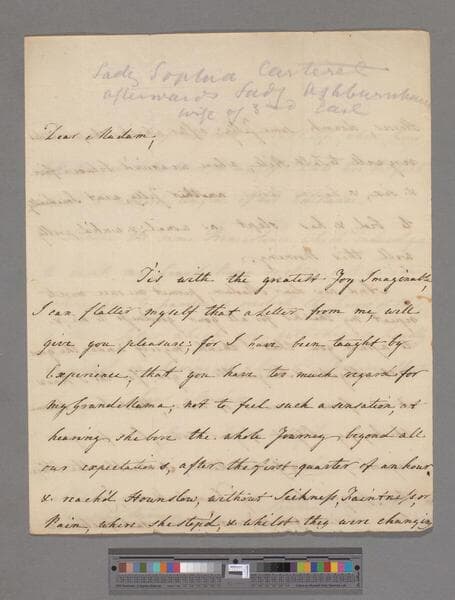 Lady Sophia Carteret
afterwards Lady Ashburnham
wife of 3rd Earl
Dear Madam,
Tis with the greatest Joy Imaginable,
I can flatter myself that a Letter from me will
give you pleasure; for I have been taught by
Experience, that you have too much regard for
my GrandMama, not to feel such a sensation at
hearing she bore the whole Journey beyond all
our expectations, after the first quarter of an hour
& reach'd Hounslow, without Sickness, Faintness, or
Pain, where she stop'd, & whilst they were changing